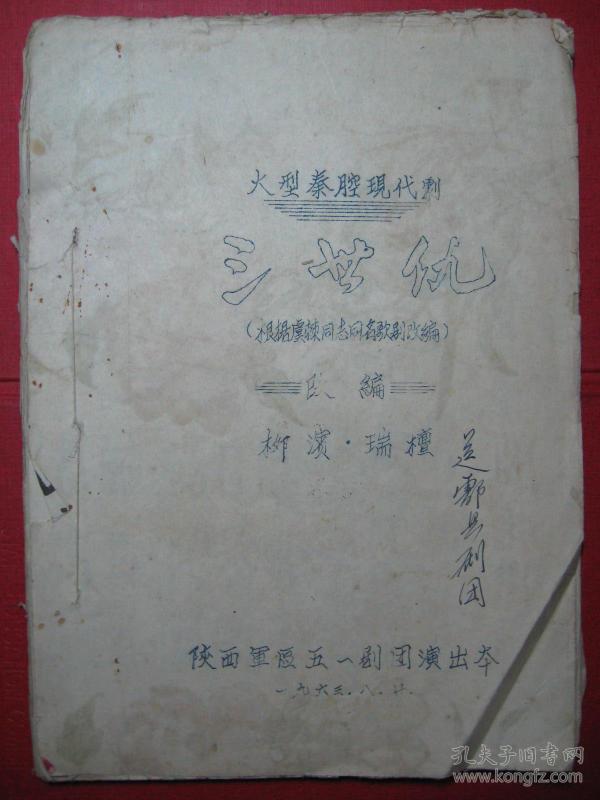 大型秦腔現代剧
三世仇
(根据虞棘同志同名歌剧改編)
改編
柳濱·瑞檀
送鄠县剧团
陕西軍區五一剧团演出本
一九六三.八.廿
孔夫子旧书网
www.kongfz.com